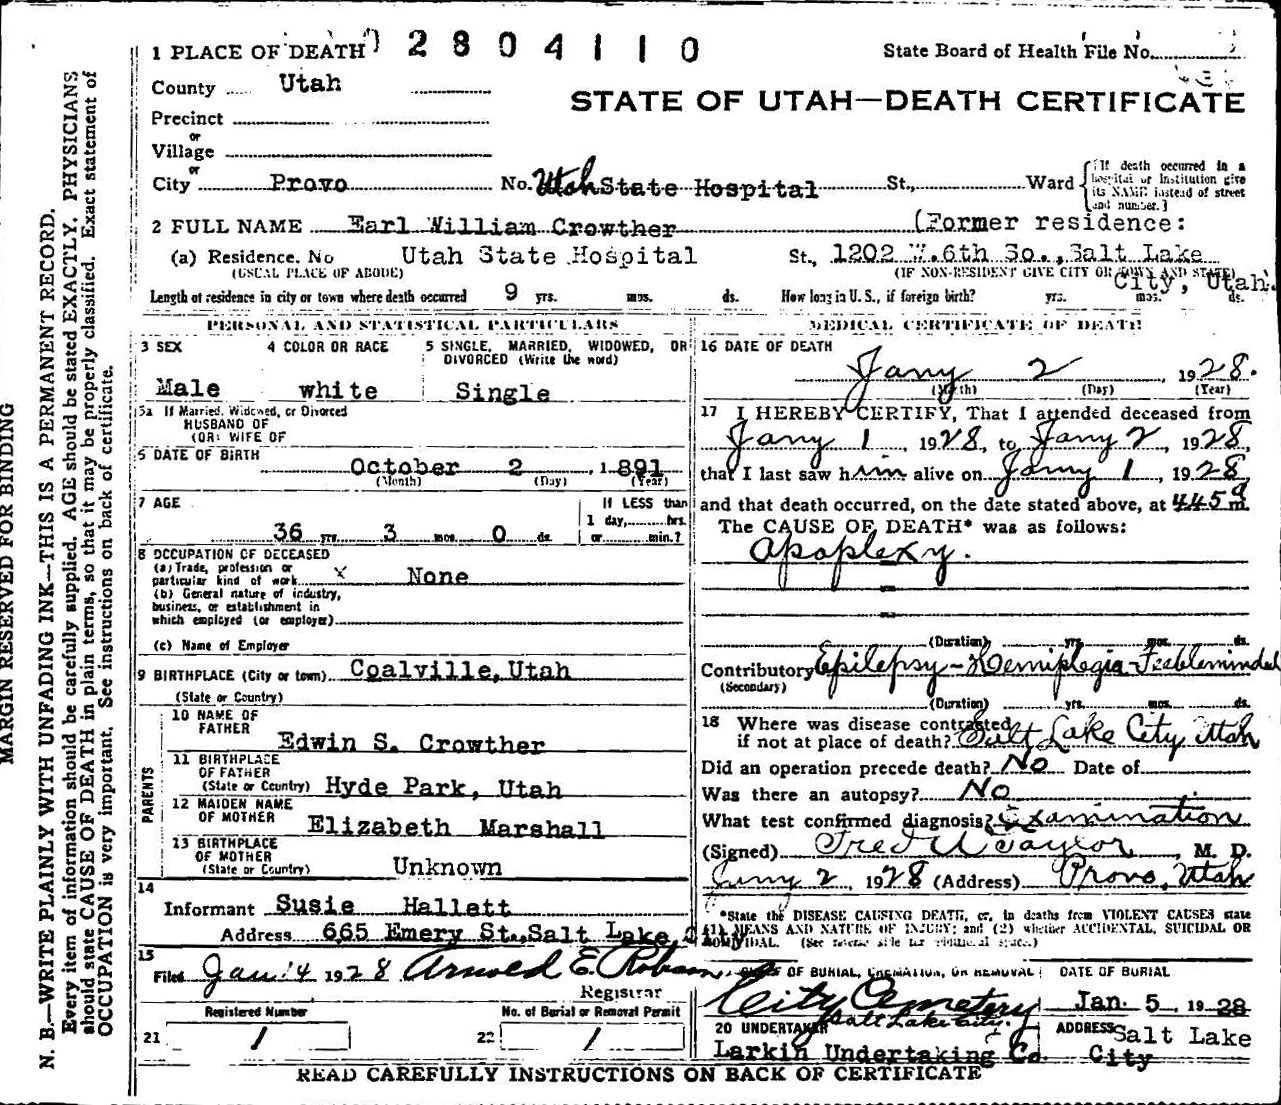 1 PLACE OF DEATH 2804110 State Board of Health File No.
County Utah
STATE OF UTAH—DEATH CERTIFICATE
Precinct
or
Village
or
City Provo No. Utah State Hospital St., Ward
(If death occurred in a hospital or institution give its NAME instead of street and number.)
2 FULL NAME Earl William Crowther (Former residence:
(a) Residence. No Utah State Hospital St., 1202 W. 6th So., Salt Lake City, Utah.
(USUAL PLACE OF ABODE) (IF NON-RESIDENT GIVE CITY OR TOWN AND STATE)
Length of residence in city or town where death occurred 9 yrs. mos. ds. How long in U. S., if foreign birth? yrs. mos. ds.
PERSONAL AND STATISTICAL PARTICULARS
3 SEX 4 COLOR OR RACE 5 SINGLE, MARRIED, WIDOWED, OR DIVORCED (Write the word)
Male white Single
5a If Married, Widowed, or Divorced
HUSBAND OF
(OR) WIFE OF
6 DATE OF BIRTH October 2, 1891
(Month) (Day) (Year)
7 AGE If LESS than
36 yrs. 3 mos. 0 ds. 1 day, hrs. or min.?
8 OCCUPATION OF DECEASED
(a) Trade, profession or
particular kind of work x None
(b) General nature of industry,
business, or establishment in
which employed (or employer)
(c) Name of Employer
9 BIRTHPLACE (City or town) Coalville, Utah
(State or Country)
PARENTS
10 NAME OF FATHER Edwin S. Crowther
11 BIRTHPLACE OF FATHER
(State or Country) Hyde Park, Utah
12 MAIDEN NAME OF MOTHER Elizabeth Marshall
13 BIRTHPLACE OF MOTHER
(State or Country) Unknown
14
Informant Susie Hallett
Address 665 Emery St., Salt Lake City
15
Filed Jan 4 1928 Arnold E. Robison
Registrar
Registered Number No. of Burial or Removal Permit
21 1 22 1
MEDICAL CERTIFICATE OF DEATH
16 DATE OF DEATH
Jany 2, 1928.
(Month) (Day) (Year)
17 I HEREBY CERTIFY, That I attended deceased from
Jany 1, 1928, to Jany 2, 1928,
that I last saw him alive on Jany 1, 1928,
and that death occurred, on the date stated above, at 445 a m.
The CAUSE OF DEATH* was as follows:
Apoplexy.
(Duration) yrs. mos. ds.
Contributory Epilepsy-Hemiplegia-Feebleminded
(Secondary)
(Duration) yrs. mos. ds.
18 Where was disease contracted
if not at place of death? Salt Lake City Utah
Did an operation precede death? No Date of
Was there an autopsy? No
What test confirmed diagnosis? Examination
(Signed) Fred W Taylor, M. D.
Jany 2, 1928 (Address) Provo, Utah
*State the DISEASE CAUSING DEATH, or, in deaths from VIOLENT CAUSES state
(1) MEANS AND NATURE OF INJURY; and (2) whether ACCIDENTAL, SUICIDAL OR
HOMICIDAL. (See reverse side for additional space.)
OF BURIAL, CREMATION, OR REMOVAL DATE OF BURIAL
City Cemetery Jan. 5 1928
Salt Lake City.
20 UNDERTAKER ADDRESS Salt Lake
Larkin Undertaking Co City
READ CAREFULLY INSTRUCTIONS ON BACK OF CERTIFICATE
MARGIN RESERVED FOR BINDING
N. B.—WRITE PLAINLY WITH UNFADING INK—THIS IS A PERMANENT RECORD.
Every item of information should be carefully supplied. AGE should be stated EXACTLY. PHYSICIANS
should state CAUSE OF DEATH in plain terms, so that it may be properly classified. Exact statement of
OCCUPATION is very important. See instructions on back of certificate.